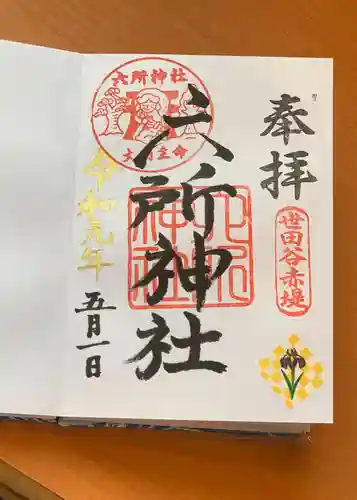 奉拝
世田谷赤堤
六所神社
六所神社
六所神社
大国主命
令和元年
五月一日